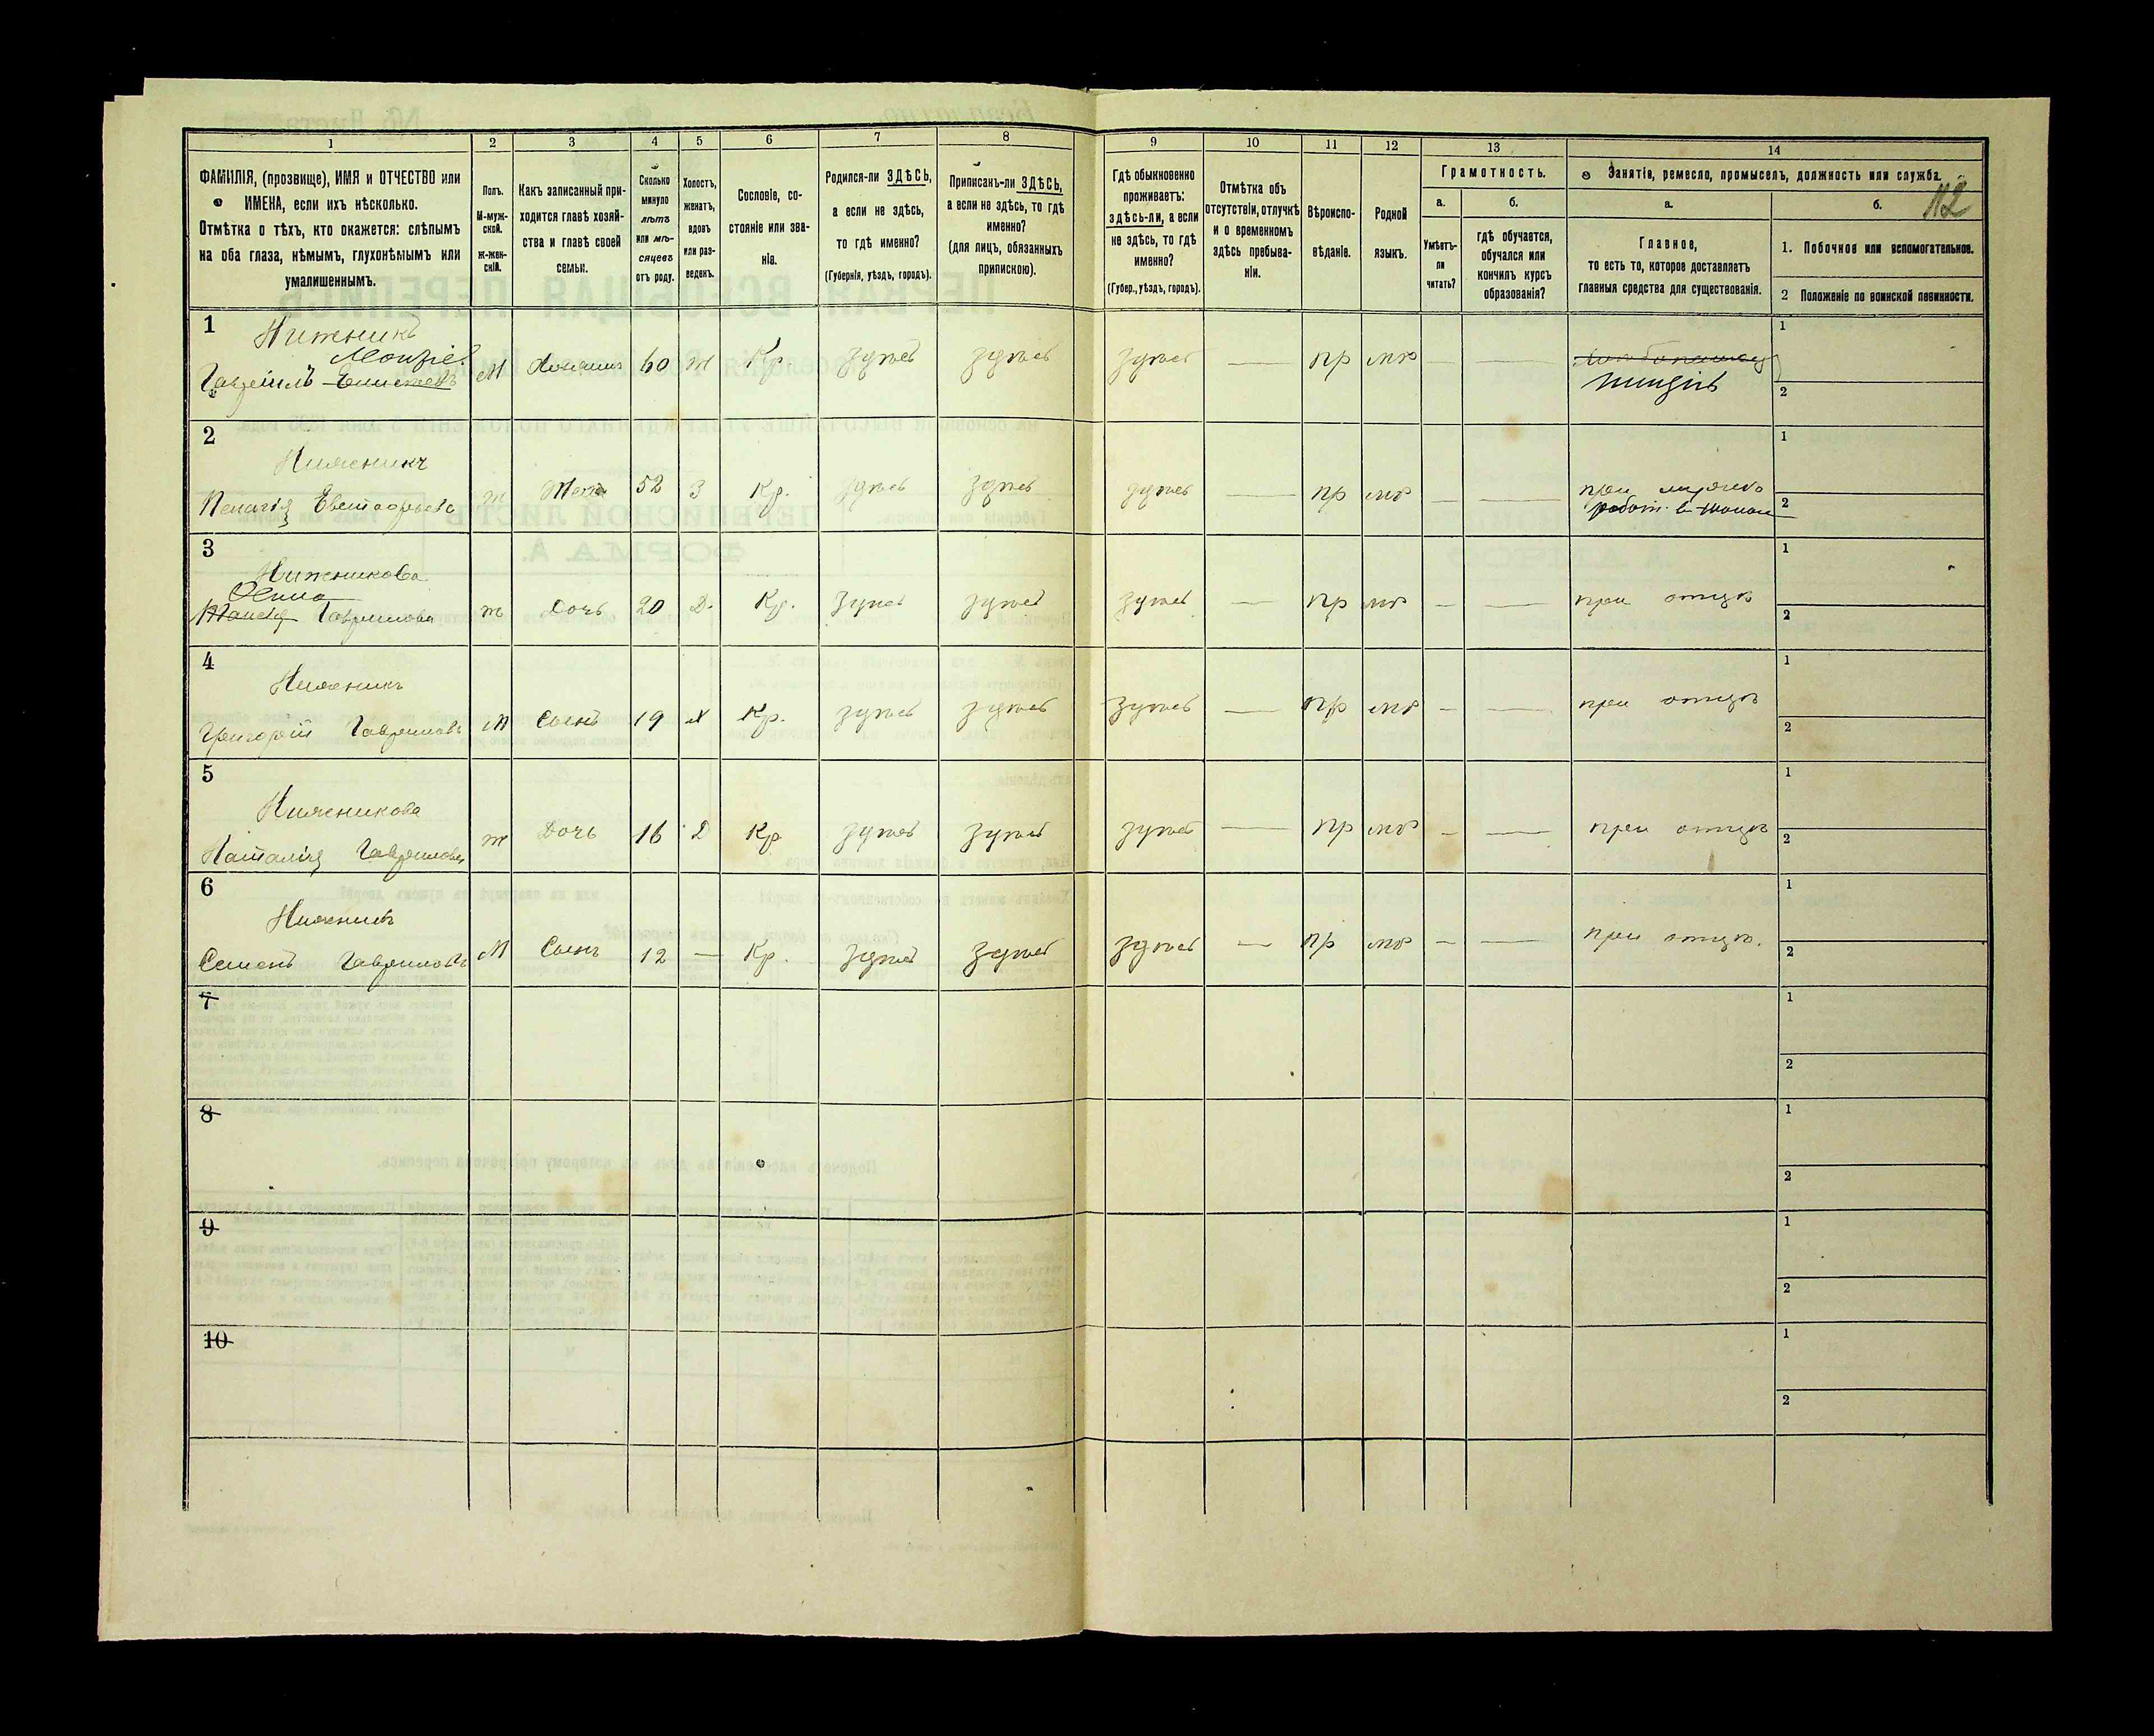 112
1 2 3 4 5 6 7 8 9 10 11 12 13 14
ФАМИЛІЯ, (прозвище), ИМЯ и ОТЧЕСТВО или
ИМЕНА, если ихъ нѣсколько.
Отмѣтка о тѣхъ, кто окажется: слѣпымъ
на оба глаза, нѣмымъ, глухонѣмымъ или
умалишеннымъ.
Полъ.
М-муж-
ской.
ж-жен-
скій.
Какъ записанный при-
ходится главѣ хозяй-
ства и главѣ своей
семьи.
Сколько
минуло
лѣтъ
или мѣ-
сяцевъ
отъ роду.
Холостъ,
женатъ,
вдовъ
или раз-
веденъ.
Сословіе, со-
стояніе или зва-
ніе.
Родился-ли ЗДѢСЬ,
а если не здѣсь,
то гдѣ именно?
(Губернія, уѣздъ, городъ).
Приписанъ-ли ЗДѢСЬ,
а если не здѣсь, то гдѣ
именно?
(для лицъ, обязанныхъ
припискою).
Гдѣ обыкновенно
проживаетъ:
здѣсь-ли, а если
не здѣсь, то гдѣ
именно?
(Губер., уѣздъ, городъ).
Отмѣтка объ
отсутствіи, отлучкѣ
и о временномъ
здѣсь пребыва-
ніи.
Вѣроиспо-
вѣданіе.
Родной
языкъ.
Грамотность.
а.
Умѣетъ-
ли
читать?
б.
гдѣ обучается,
обучался или
кончилъ курсъ
образованія?
Занятіе, ремесло, промыселъ, должность или служба.
а.
Главное,
то есть то, которое доставляетъ
главныя средства для существованія.
б.
1. Побочное или вспомогательное.
2 Положеніе по воинской повинности.
1 Нижникъ
Гавріилъ
М Хозяинъ 60 ж Кр. здѣсь здѣсь здѣсь — пр мр — —
нищій
1
2
2 Нижникъ
Пелагія
ж Жена 52 З Кр. здѣсь здѣсь здѣсь — пр мр — —
при
1
2
3 Нижникова
Гаврилова ж Дочь 20 Д. Кр. здѣсь здѣсь здѣсь — пр мр — — при отцѣ
1
2
4 Нижникъ
Григорій Гавриловъ М Сынъ 19 х Кр. здѣсь здѣсь здѣсь — пр мр — — при отцѣ
1
2
5 Нижникова
Наталія Гаврилова ж Дочь 16 Д Кр здѣсь здѣсь здѣсь — пр мр — — при отцѣ
1
2
6 Нижникъ
Семенъ Гавриловъ М Сынъ 12 — Кр. здѣсь здѣсь здѣсь — пр мр — — при отцѣ.
1
2
7
1
2
8
1
2
9
1
2
10
1
2